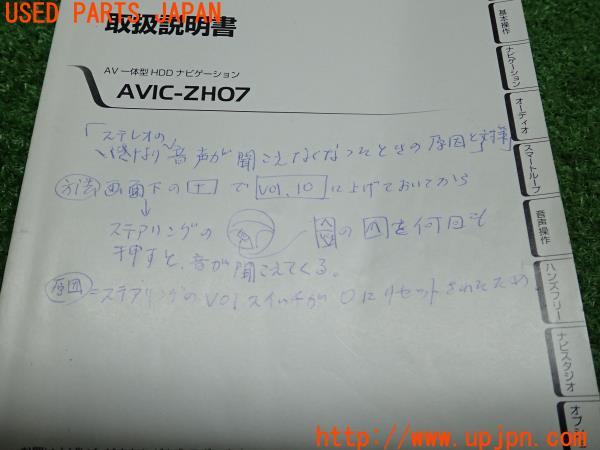 USED PARTS JAPAN
取扱説明書
AV一体型HDDナビゲーション
AVIC-ZH07
「ステレオの
いきなり音声が聞こえなくなったときの原因と対策」
方法 画面下の + で VOl.10 に上げておいてから
↓
ステアリングの の を何回も
押すと、音が聞こえてくる。
原因 = ステアリングのVOlスイッチが0にリセットされたため
基本操作
ナビゲーション
オーディオ
スマートループ
音声操作
ハンズフリー
ナビスタジオ
オプシ
(株)UPJ http://www.upjpn.com